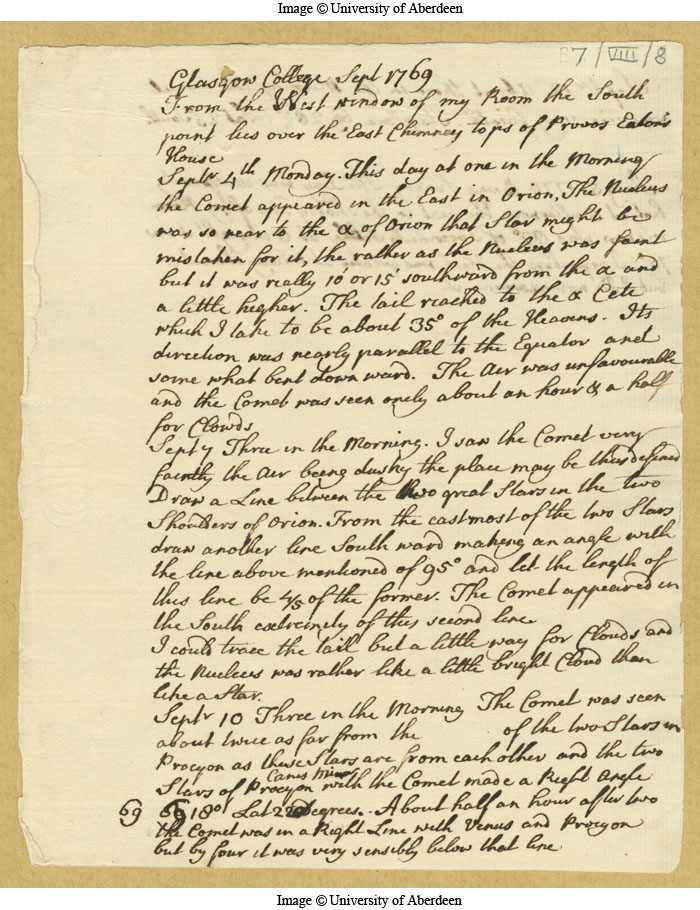 Image © University of Aberdeen
87/VIII/8
Glasgow College Sept 1769
From the West window of my Room the South
point lies over the East Chimney tops of Provos Eaton's
House
Septr 4th Monday. This day at one in the Morning
the Comet appeared in the East in Orion. The Nucleus
was so near to the α of Orion that Star might be
mistaken for it, the rather as the Nucleus was faint
but it was really 10' or 15' southward from the α and
a little higher. The tail reached to the α Cete
which I take to be about 35° of the Heavens. Its
direction was nearly parallel to the Equator and
some what bent down ward. The Aer was unfavourable
and the Comet was seen onely about an hour & a half
for Clowds
Sept 7 Three in the Morning. I saw the Comet very
faintly the Aer being dusky the place may be thus defined
Draw a Line between the two great Stars in the two
Shoulders of Orion. From the eastmost of the two Stars
draw another line South ward making an angle with
the line above mentioned of 95° and let the length of
this line be 4/5 of the former. The Comet appeared in
the South extremity of this second line
I could trace the tail but a little way for Clouds and
the Nucleus was rather like a little bright Cloud than
like a Star.
Septr 10 Three in the Morning The Comet was seen
about twice as far from the of the two Stars in
Procyon as these Stars are from each other and the two
Canis Minor
Stars of Procyon with the Comet made a Right Angle
69 18° Lat 22 degrees. About half an hour after two
the Comet was in a Right Line with Venus and Procyon
but by four it was very sensibly below that line
Image © University of Aberdeen